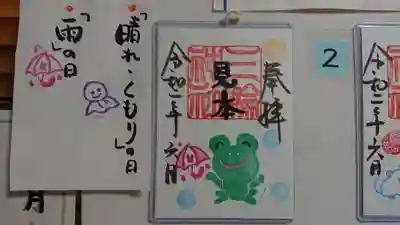 「晴れ・くもり」の日
「雨」の日
月
奉拝
三輪
神社
見本
令和二年六月
2
令和二年六月